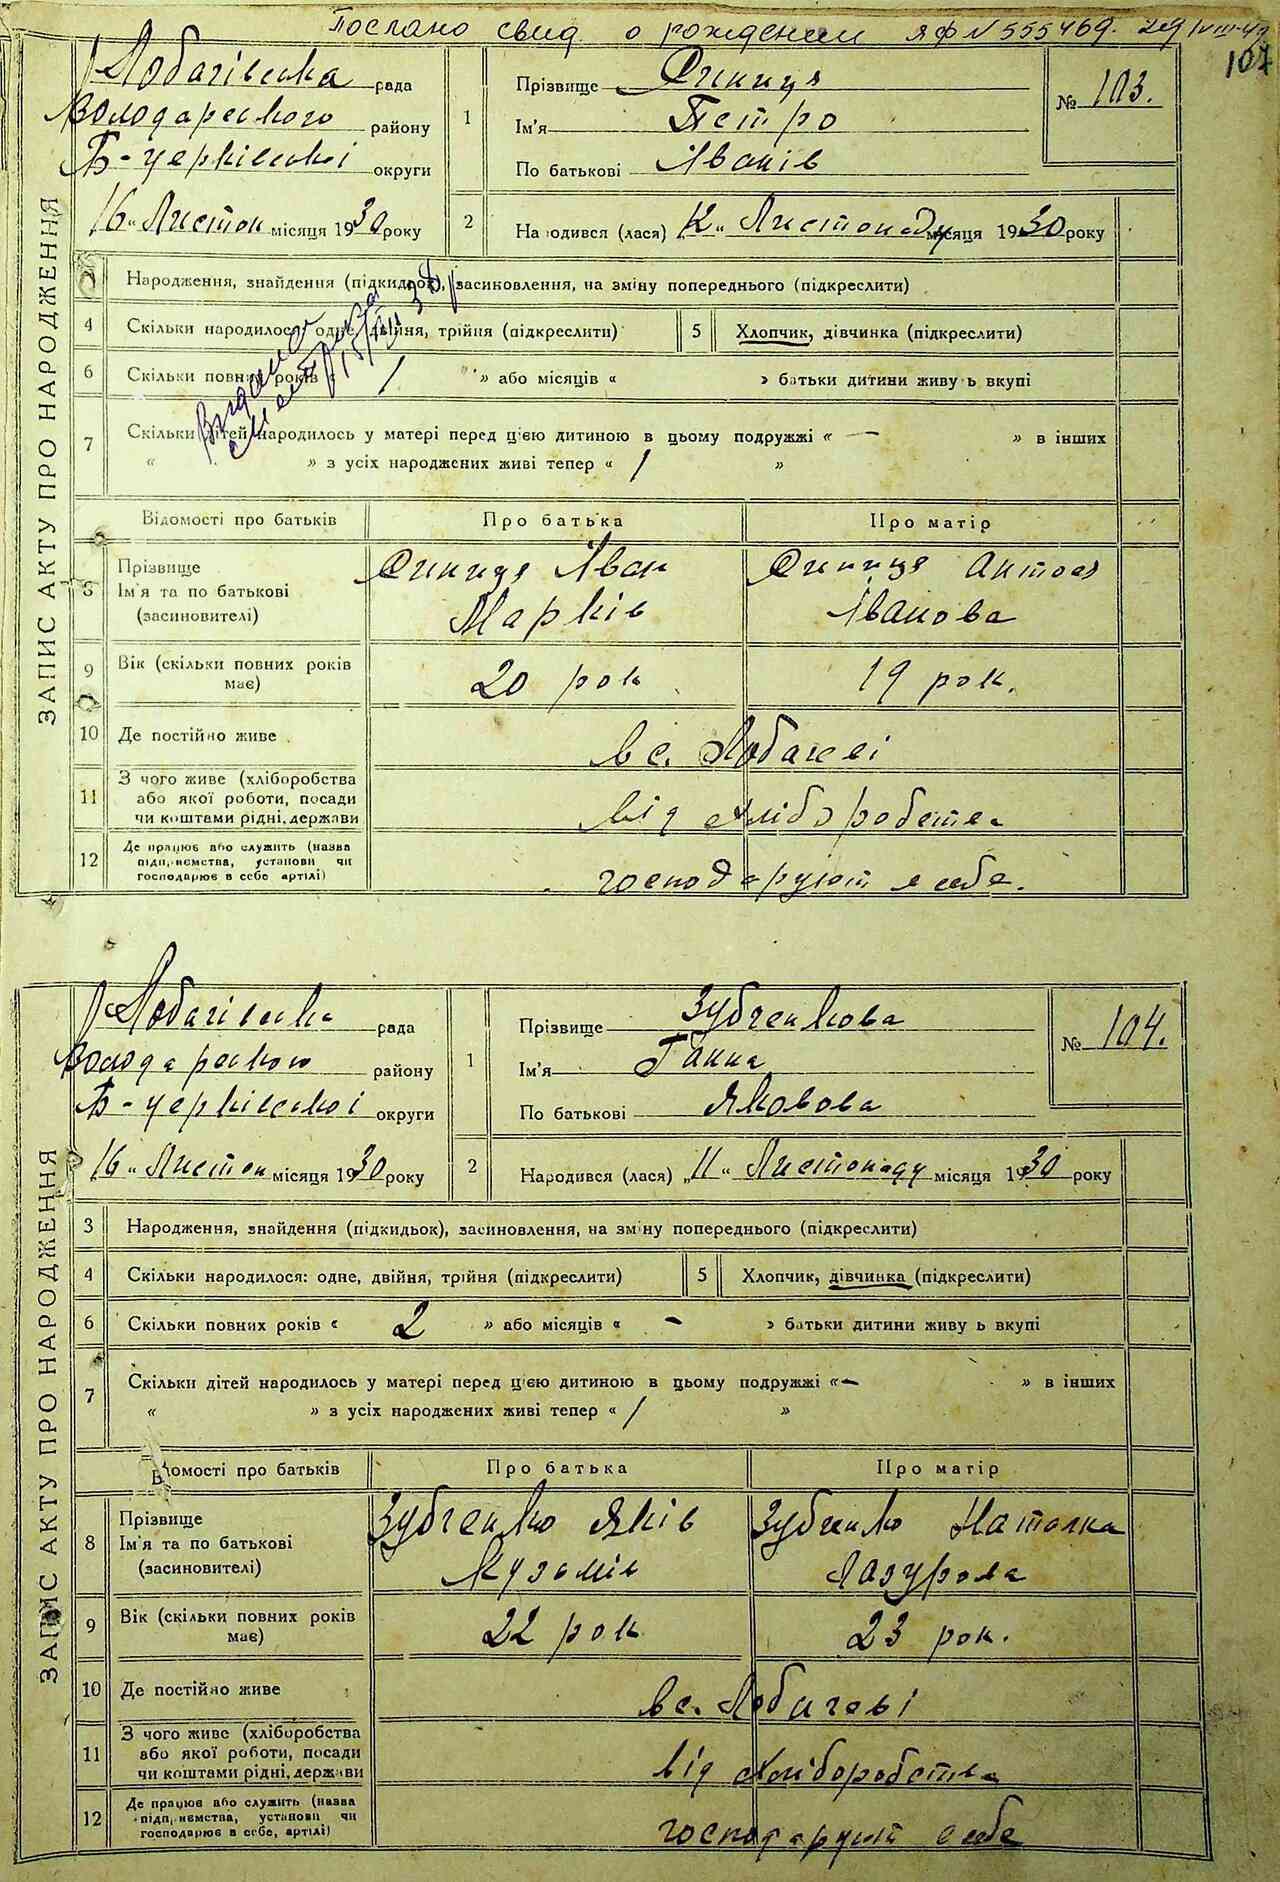 Послано свид о рождении ЯФ N 555469. 29/VIII-49
107
Лобачівська рада
Володарського району
Б-церківської округи
16 „ Листоп місяця 1930 року
1
Прізвище Синиця
Ім'я Петро
По батькові Іванів
№ 103.
2
Народився (лася) 12 „ Листопаду місяця 1930 року
ЗАПИС АКТУ ПРО НАРОДЖЕННЯ
3 Народження, знайдення (підкидьок), засиновлення, на зміну попереднього (підкреслити)
4 Скільки народилося: одне, двійня, трійня (підкреслити) 5 Хлопчик, дівчинка (підкреслити)
6 Скільки повних років « 1 » або місяців « » батьки дитини живуть вкупі
Видано
Метрика
15/VII 38
7 Скільки дітей народилось у матері перед цією дитиною в цьому подружжі « — » в інших
« » з усіх народжених живі тепер « / »
Відомості про батьків Про батька Про матір
8 Прізвище
Ім'я та по батькові
(засиновителі)
Синиця Іван
Марків
Синиця
Іванова
9 Вік (скільки повних років має) 20 рок 19 рок.
10 Де постійно живе в с. Лобачеві
11 З чого живе (хліборобства
або якої роботи, посади
чи коштами рідні, держави
від хліборобства
12 Де працює або служить (назва
підприємства, установи чи
господарює в себе артілі)
господарують в себе.
Лобачівська рада
Володарського району
Б-церківської округи
16 „ Листоп місяця 1930 року
1
Прізвище Зубченкова
Ім'я Ганна
По батькові Яковова
№ 104.
2
Народився (лася) „ 11 „ Листопаду місяця 1930 року
ЗАПИС АКТУ ПРО НАРОДЖЕННЯ
3 Народження, знайдення (підкидьок), засиновлення, на зміну попереднього (підкреслити)
4 Скільки народилося: одне, двійня, трійня (підкреслити) 5 Хлопчик, дівчинка (підкреслити)
6 Скільки повних років « 2 » або місяців « - » батьки дитини живуть вкупі
7 Скільки дітей народилось у матері перед цією дитиною в цьому подружжі « — » в інших
« » з усіх народжених живі тепер « / »
Відомості про батьків Про батька Про матір
8 Прізвище
Ім'я та по батькові
(засиновителі)
Зубченко Яків
Кузьмів
Зубченко Наталка
Лазурова
9 Вік (скільки повних років має) 22 рок 23 рок.
10 Де постійно живе в с. Лобачеві
11 З чого живе (хліборобства
або якої роботи, посади
чи коштами рідні, держави
від хліборобства
12 Де працює або служить (назва
підприємства, установи чи
господарює в себе, артілі)
господарують в себе